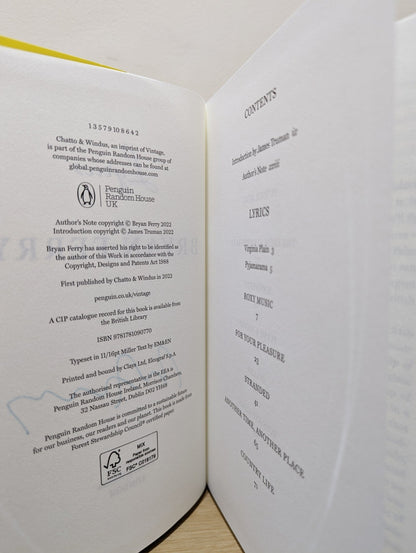 1 3 5 7 9 10 8 6 4 2
Chatto & Windus, an imprint of Vintage,
is part of the Penguin Random House group of
companies whose addresses can be found at
global.penguinrandomhouse.com
Penguin
Random House
UK
Author's Note copyright © Bryan Ferry 2022
Introduction copyright © James Truman 2022
Bryan Ferry has asserted his right to be identified as
the author of this Work in accordance with the
Copyright, Designs and Patents Act 1988
First published by Chatto & Windus in 2022
penguin.co.uk/vintage
A CIP catalogue record for this book is available from
the British Library
ISBN 9781781090770
Typeset in 11/16pt Miller Text by EM&EN
Printed and bound by Clays Ltd, Elcograf S.p.A.
The authorised representative in the EEA is
Penguin Random House Ireland, Morrison Chambers,
32 Nassau Street, Dublin D02 YH68
Penguin Random House is committed to a sustainable future
for our business, our readers and our planet. This book is made from
Forest Stewardship Council® certified paper.
FSC
www.fsc.org
MIX
Paper from
responsible sources
FSC® C018179
CONTENTS
Introduction by James Truman
Author's Note
LYRICS
Virginia Plain 3
Pyjamarama 5
ROXY MUSIC
7
FOR YOUR PLEASURE
25
STRANDED
41
ANOTHER TIME, ANOTHER PLACE
65
COUNTRY LIFE
71